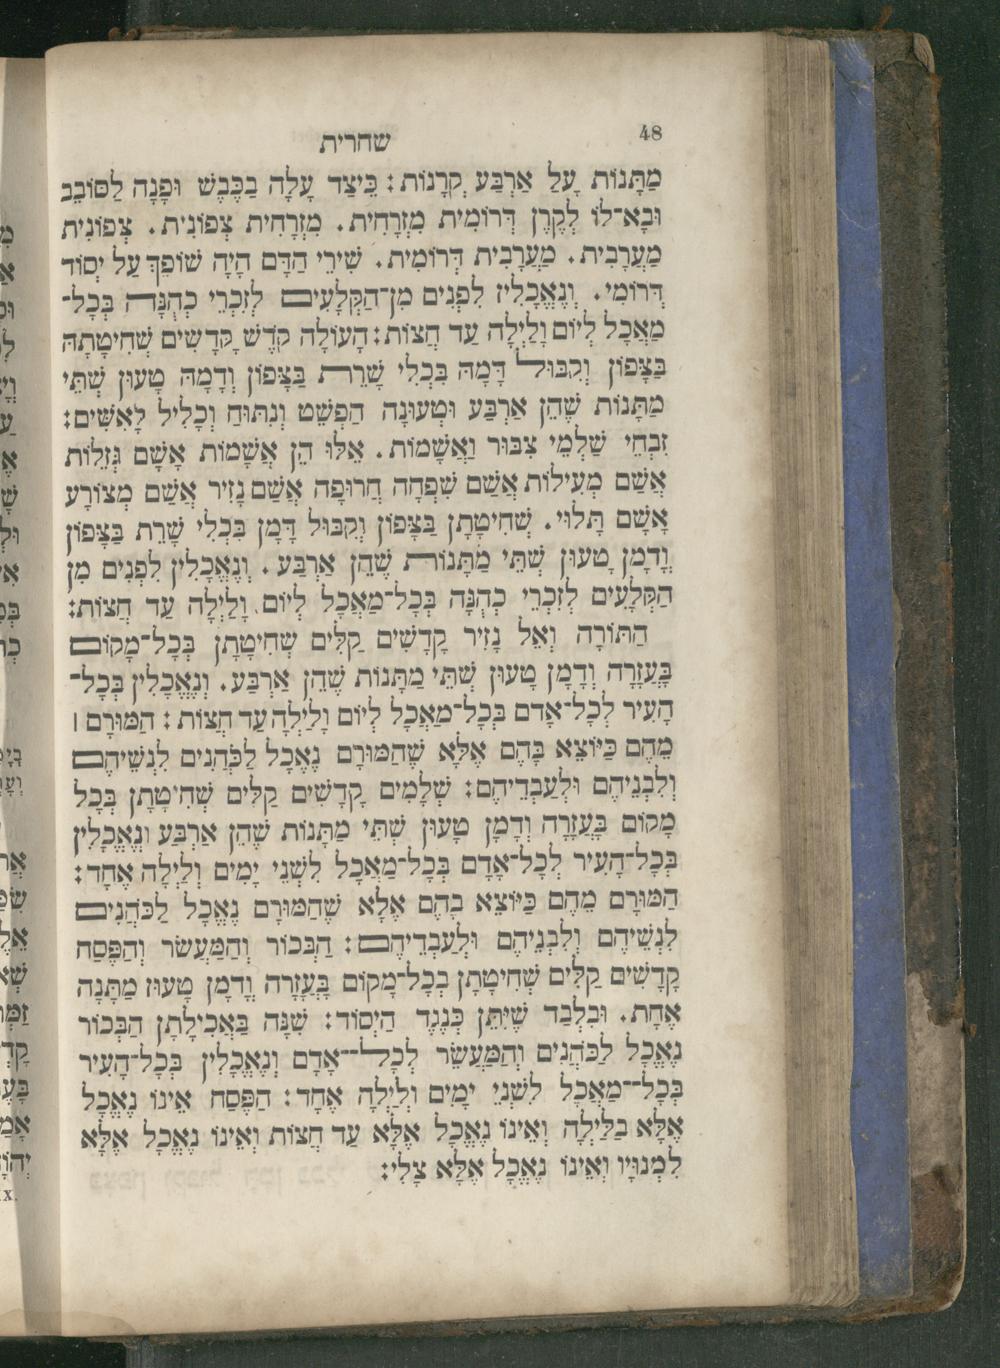 48
שחרית
מַתָּנוֹת עָל אַרְבַּע קְרָנוֹת: כֵּיצַד עָלָה בַכֶּבֶשׁ וּפָנָה לַסּוֹבֵב
וּבָא־לוֹ לְקֶרֶן דְּרוֹמִית מִזְרָחִית. מִזְרָחִית צְפוֹנִית. צְפוֹנִית
מַעֲרָבִית. מַעֲרָבִית דְּרוֹמִית. שְׁיָרֵי הַדָּם הָיָה שׁוֹפֵךְ עַל יְסוֹד
דְּרוֹמִי. וְנֶאֱכָלִין לִפְנִים מִן־הַקְּלָעִים לְזִכְרֵי כְהֻנָּה בְּכָל־
מַאֲכָל לְיוֹם וָלַיְלָה עַד חֲצוֹת: הָעוֹלָה קֹדֶשׁ קָדָשִׁים שְׁחִיטָתָהּ
בַּצָּפוֹן וְקִבּוּל דָּמָהּ בִּכְלִי שָׁרֵת בַּצָּפוֹן וְדָמָהּ טָעוּן שְׁתֵּי
מַתָּנוֹת שֶׁהֵן אַרְבַּע וּטְעוּנָה הַפְשֵׁט וְנִתּוּחַ וְכָלִיל לָאִשִּׁים:
זִבְחֵי שַׁלְמֵי צִבּוּר וַאֲשָׁמוֹת. אֵלּוּ הֵן אֲשָׁמוֹת אֲשַׁם גְּזֵלוֹת
אֲשַׁם מְעִילוֹת אֲשַׁם שִׁפְחָה חֲרוּפָה אֲשַׁם נָזִיר אֲשַׁם מְצוֹרָע
אָשָׁם תָּלוּי. שְׁחִיטָתָן בַּצָּפוֹן וְקִבּוּל דָּמָן בִּכְלִי שָׁרֵת בַּצָּפוֹן
וְדָמָן טָעוּן שְׁתֵּי מַתָּנוֹת שֶׁהֵן אַרְבַּע. וְנֶאֱכָלִין לִפְנִים מִן
הַקְּלָעִים לְזִכְרֵי כְהֻנָּה בְּכָל־מַאֲכָל לְיוֹם וָלַיְלָה עַד חֲצוֹת:
הַתּוֹדָה וְאֵיל נָזִיר קָדָשִׁים קַלִּים שְׁחִיטָתָן בְּכָל־מָקוֹם
בָּעֲזָרָה וְדָמָן טָעוּן שְׁתֵּי מַתָּנוֹת שֶׁהֵן אַרְבַּע. וְנֶאֱכָלִין בְּכָל־
הָעִיר לְכָל־אָדָם בְּכָל־מַאֲכָל לְיוֹם וָלַיְלָה עַד חֲצוֹת: הַמּוּרָם
מֵהֶם כַּיּוֹצֵא בָהֶם אֶלָּא שֶׁהַמּוּרָם נֶאֱכָל לַכֹּהֲנִים לִנְשֵׁיהֶם
וְלִבְנֵיהֶם וּלְעַבְדֵיהֶם: שְׁלָמִים קָדָשִׁים קַלִּים שְׁחִיטָתָן בְּכָל
מָקוֹם בָּעֲזָרָה וְדָמָן טָעוּן שְׁתֵּי מַתָּנוֹת שֶׁהֵן אַרְבַּע וְנֶאֱכָלִין
בְּכָל־הָעִיר לְכָל־אָדָם בְּכָל־מַאֲכָל לִשְׁנֵי יָמִים וְלַיְלָה אֶחָד:
הַמּוּרָם מֵהֶם כַּיּוֹצֵא בָהֶם אֶלָּא שֶׁהַמּוּרָם נֶאֱכָל לַכֹּהֲנִים
לִנְשֵׁיהֶם וְלִבְנֵיהֶם וּלְעַבְדֵיהֶם: הַבְּכוֹר וְהַמַּעֲשֵׂר וְהַפֶּסַח
קָדָשִׁים קַלִּים שְׁחִיטָתָן בְּכָל־מָקוֹם בָּעֲזָרָה וְדָמָן טָעוּן מַתָּנָה
אֶחָת. וּבִלְבַד שֶׁיִּתֵּן כְּנֶגֶד הַיְסוֹד: שִׁנָּה בַאֲכִילָתָן הַבְּכוֹר
נֶאֱכָל לַכֹּהֲנִים וְהַמַּעֲשֵׂר לְכָל־אָדָם וְנֶאֱכָלִין בְּכָל־הָעִיר
בְּכָל־מַאֲכָל לִשְׁנֵי יָמִים וְלַיְלָה אֶחָד: הַפֶּסַח אֵינוֹ נֶאֱכָל
אֶלָּא בַלַּיְלָה וְאֵינוֹ נֶאֱכָל אֶלָּא עַד חֲצוֹת וְאֵינוֹ נֶאֱכָל אֶלָּא
לִמְנוּיָו וְאֵינוֹ נֶאֱכָל אֶלָּא צָלִי: